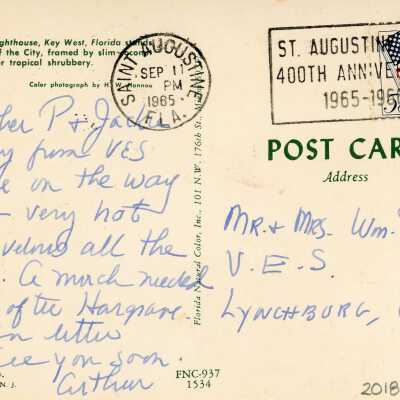 ghthouse, Key West, Florida stands
of the City, framed by slim coconut
r tropical shrubbery.
Color photograph by H. W. Hannau
SAINT AUGUSTINE
SEP 11
PM
1965
FLA.
ST. AUGUSTINE
400TH ANNIVE
1965-196
5
P & Jack
y from VES
e on the way
- very hot
all the
. A much needed
of the Hargrave
letter
ee you soon.
Arthur
N. J.
FNC-937
1534
Florida Natural Color, Inc., 101 N.W. 176th St., M
POST CAR
Address
Mr. + Mrs. Wm.
V. E. S.
Lynchburg,
2018